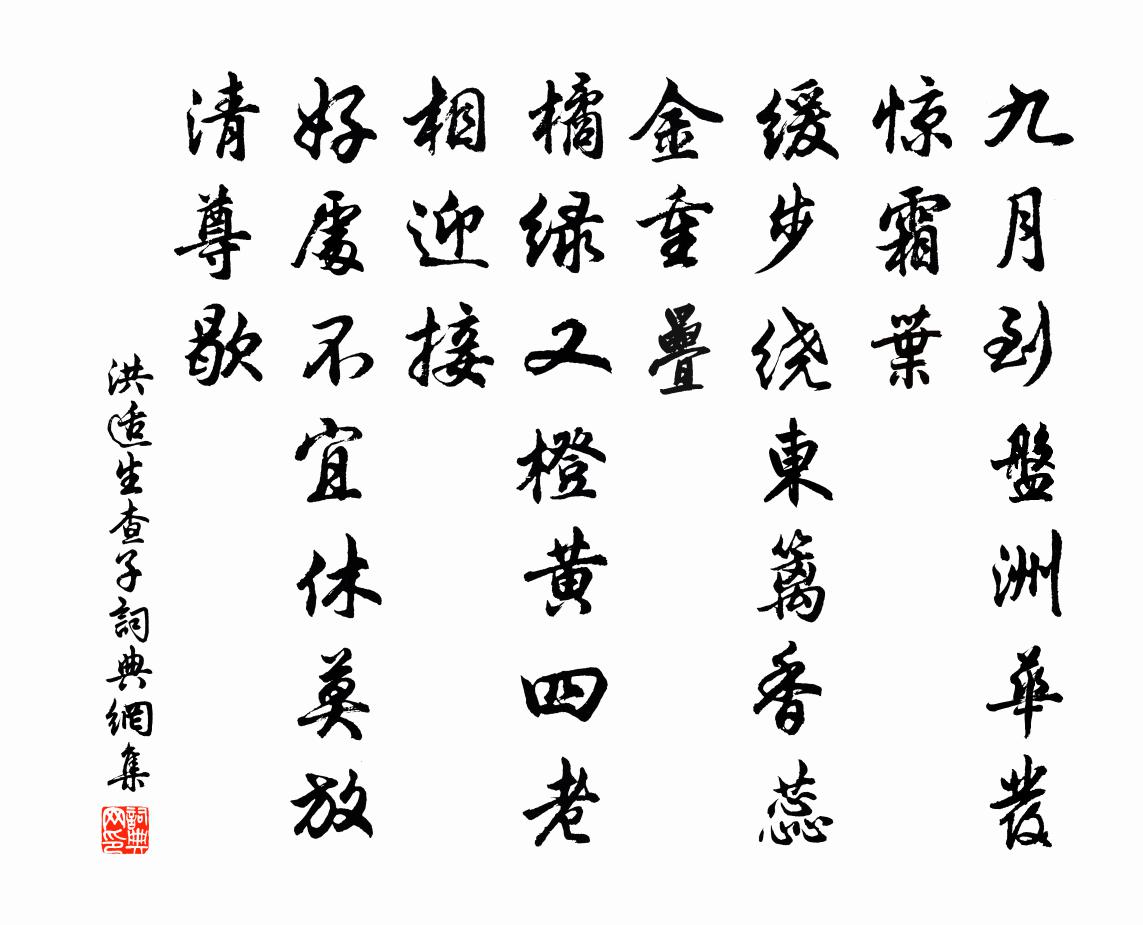 九月到盤洲華發
惊霜葉
缓步绕東籬香蕊
金重疊
橘绿又橙黄四老
相迎接
好處不宜休莫放
清尊歇
洪适生查子詞典網集
詞典网印